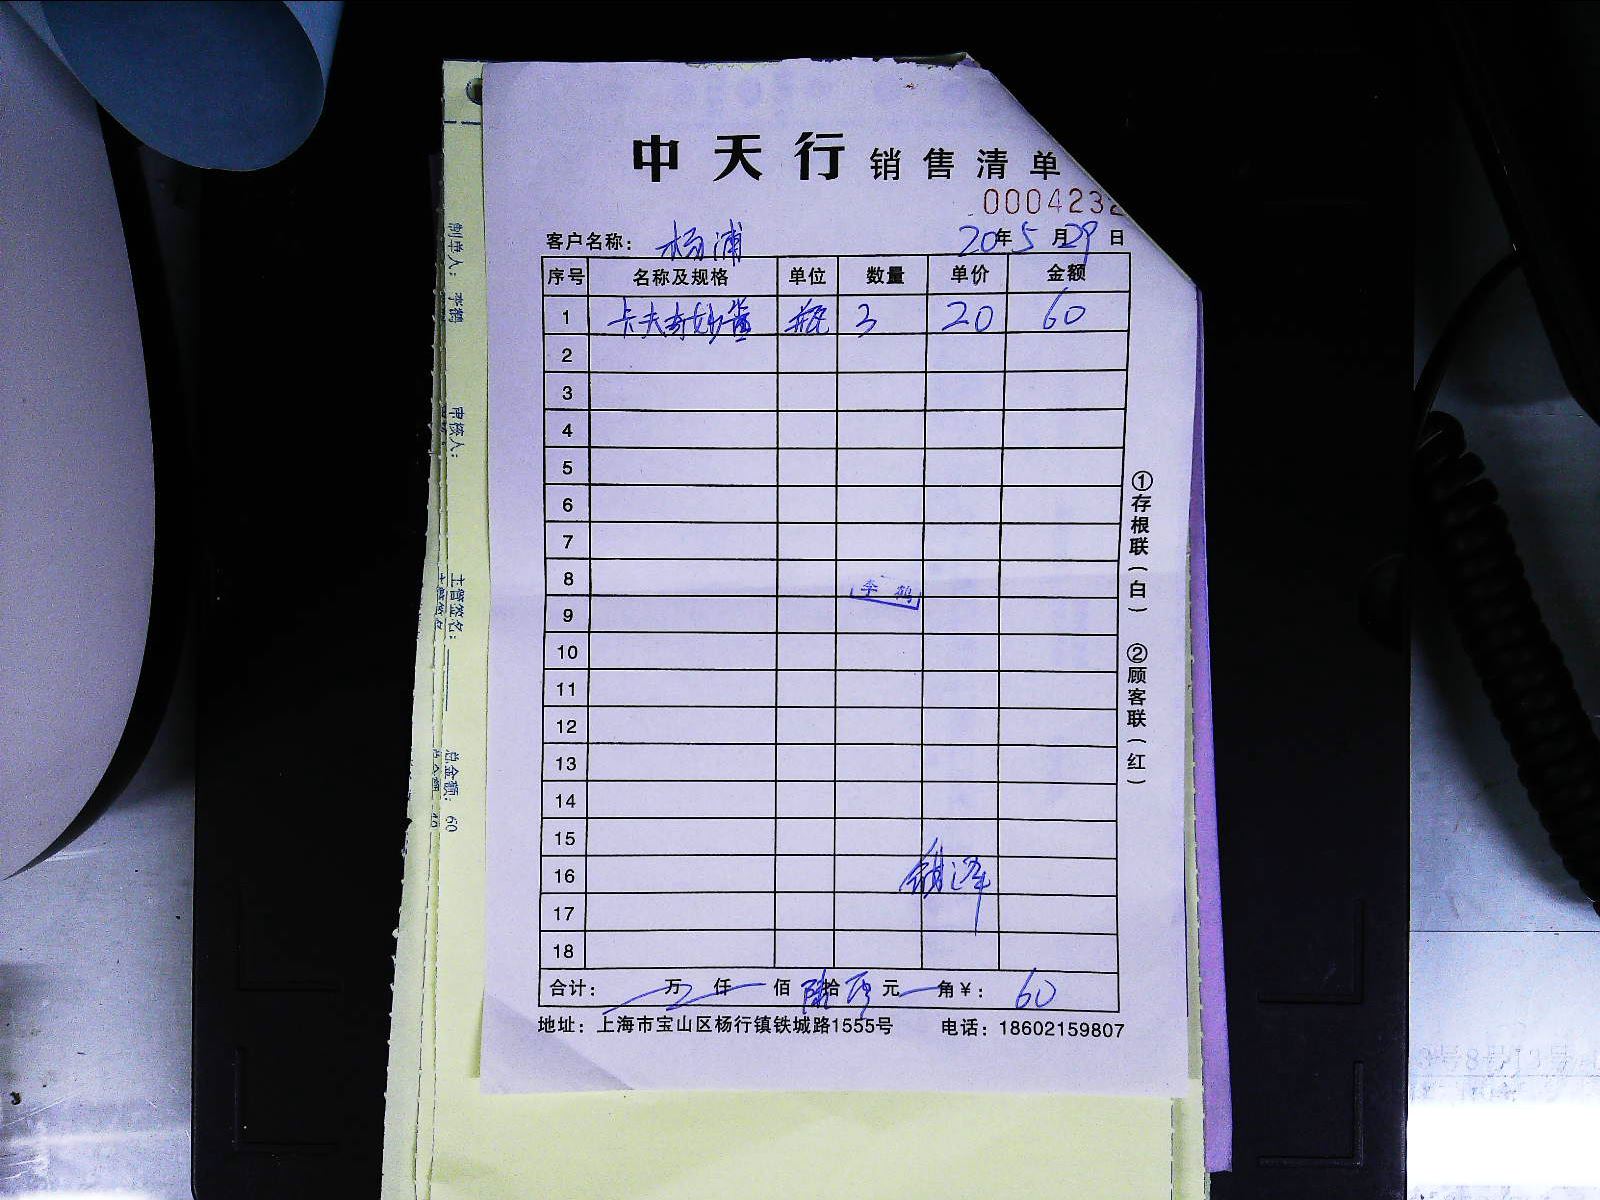 中天行 销售清单
000423
客户名称: 杨浦 20年5月29日
序号 名称及规格 单位 数量 单价 金额
1 卡夫奇妙酱 瓶 3 20 60
2
3
4
5
6
7
8
李鹤
9
10
11
12
13
14
15
16
17
18
合计: 万 仟 佰 陆拾 元 角¥: 60
地址: 上海市宝山区杨行镇铁城路1555号 电话: 18602159807
①存根联(白) ②顾客联(红)
制单人: 李鹤 审核人: 主管签名: 总金额: 60